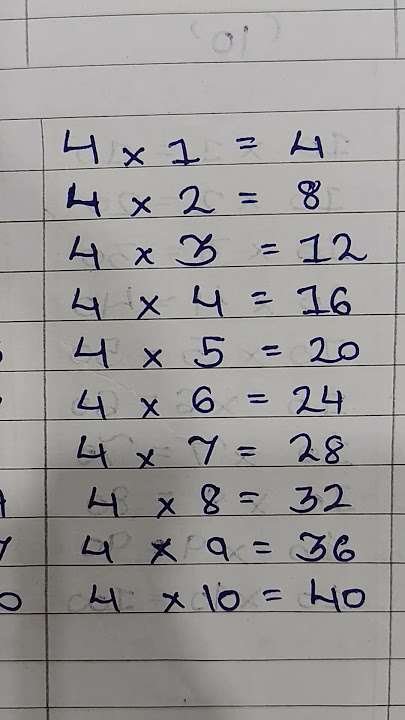 4 × 1 = 4
4 × 2 = 8
4 × 3 = 12
4 × 4 = 16
4 × 5 = 20
4 × 6 = 24
4 × 7 = 28
4 × 8 = 32
4 × 9 = 36
4 × 10 = 40